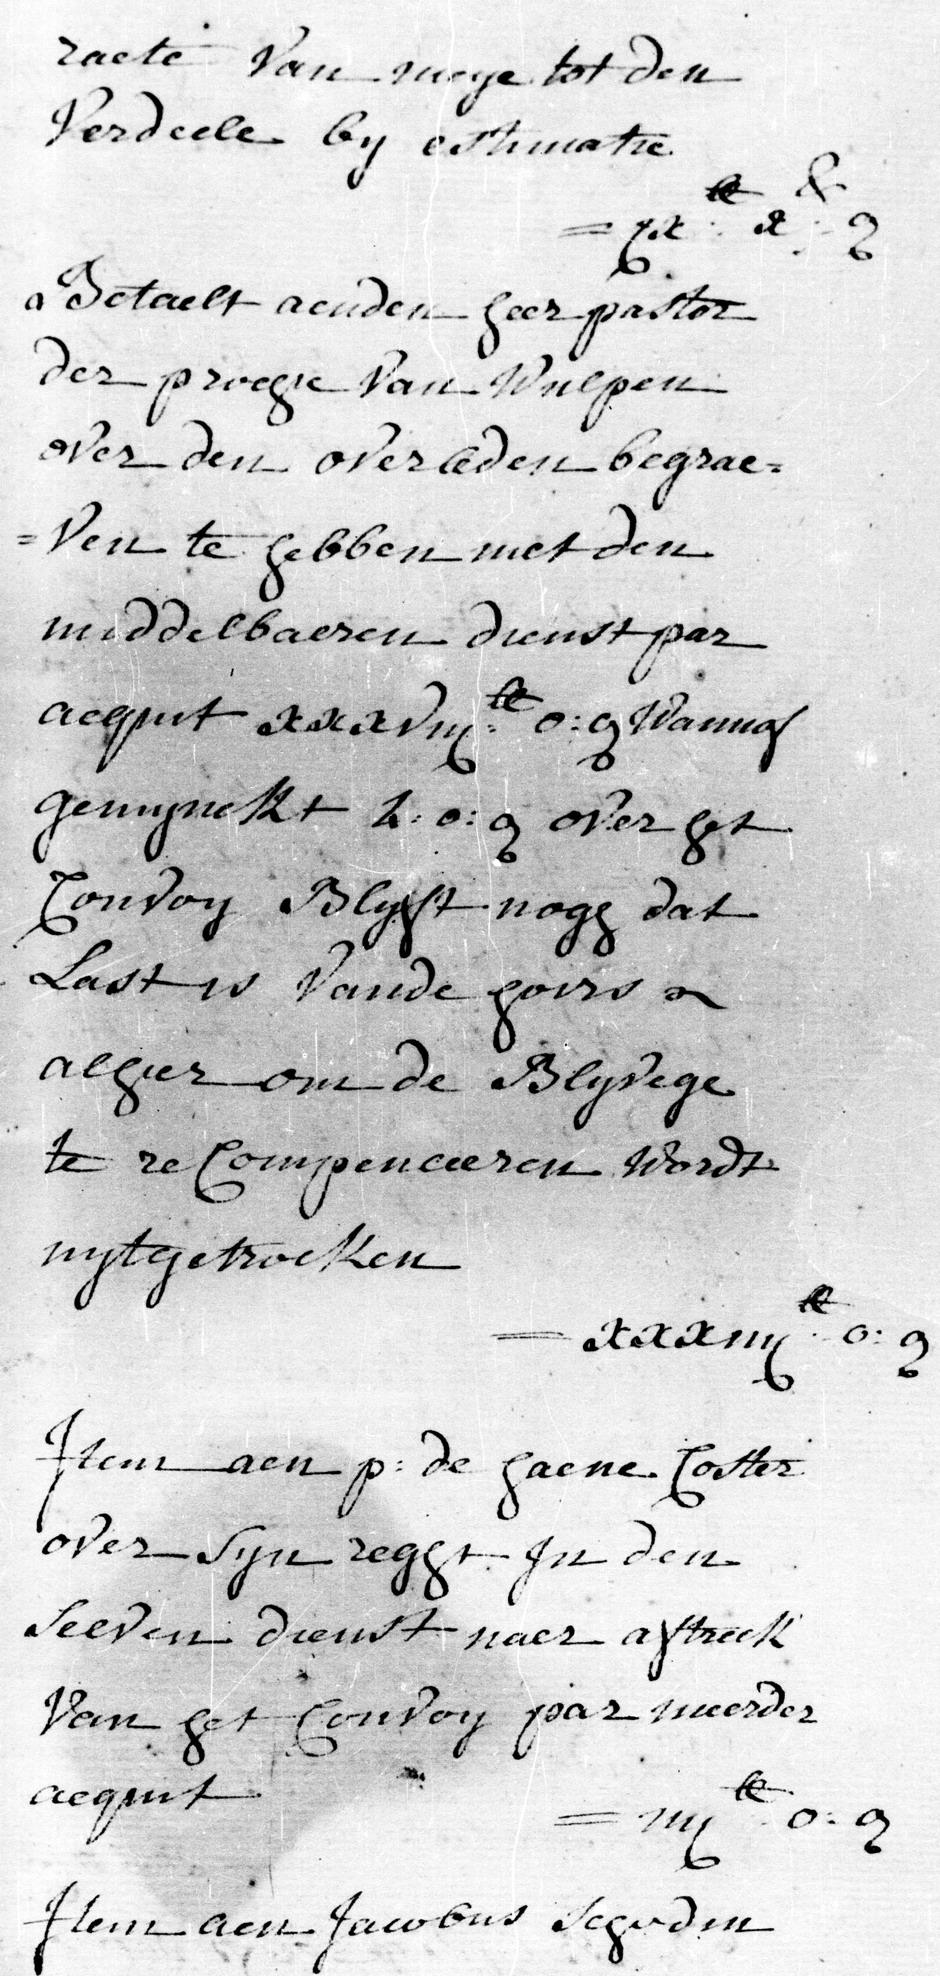 raete van meye tot den
verdeele by estimatie
= ix lb x ß
Betaelt aenden heer pastor
der prochie van Wulpen
over den overleden begrae=
=ven te hebben met den
middelbaeren dienst par
acquit xxxviij lb o: o wanuof
gemynckt 4: o: o over het
Convoy Blyft nogh dat
Last is vande hoirs
alhier om de Blyvege
te reCompenceeren wordt
uytgetrocken
= xxxiiij lb o: o
Item aen p: de haene Coster
over syn reght In den
selven dienst naer aftreck
van het Convoy par meerder
acquit
= iiij lb o: o
Item aen Jacobus